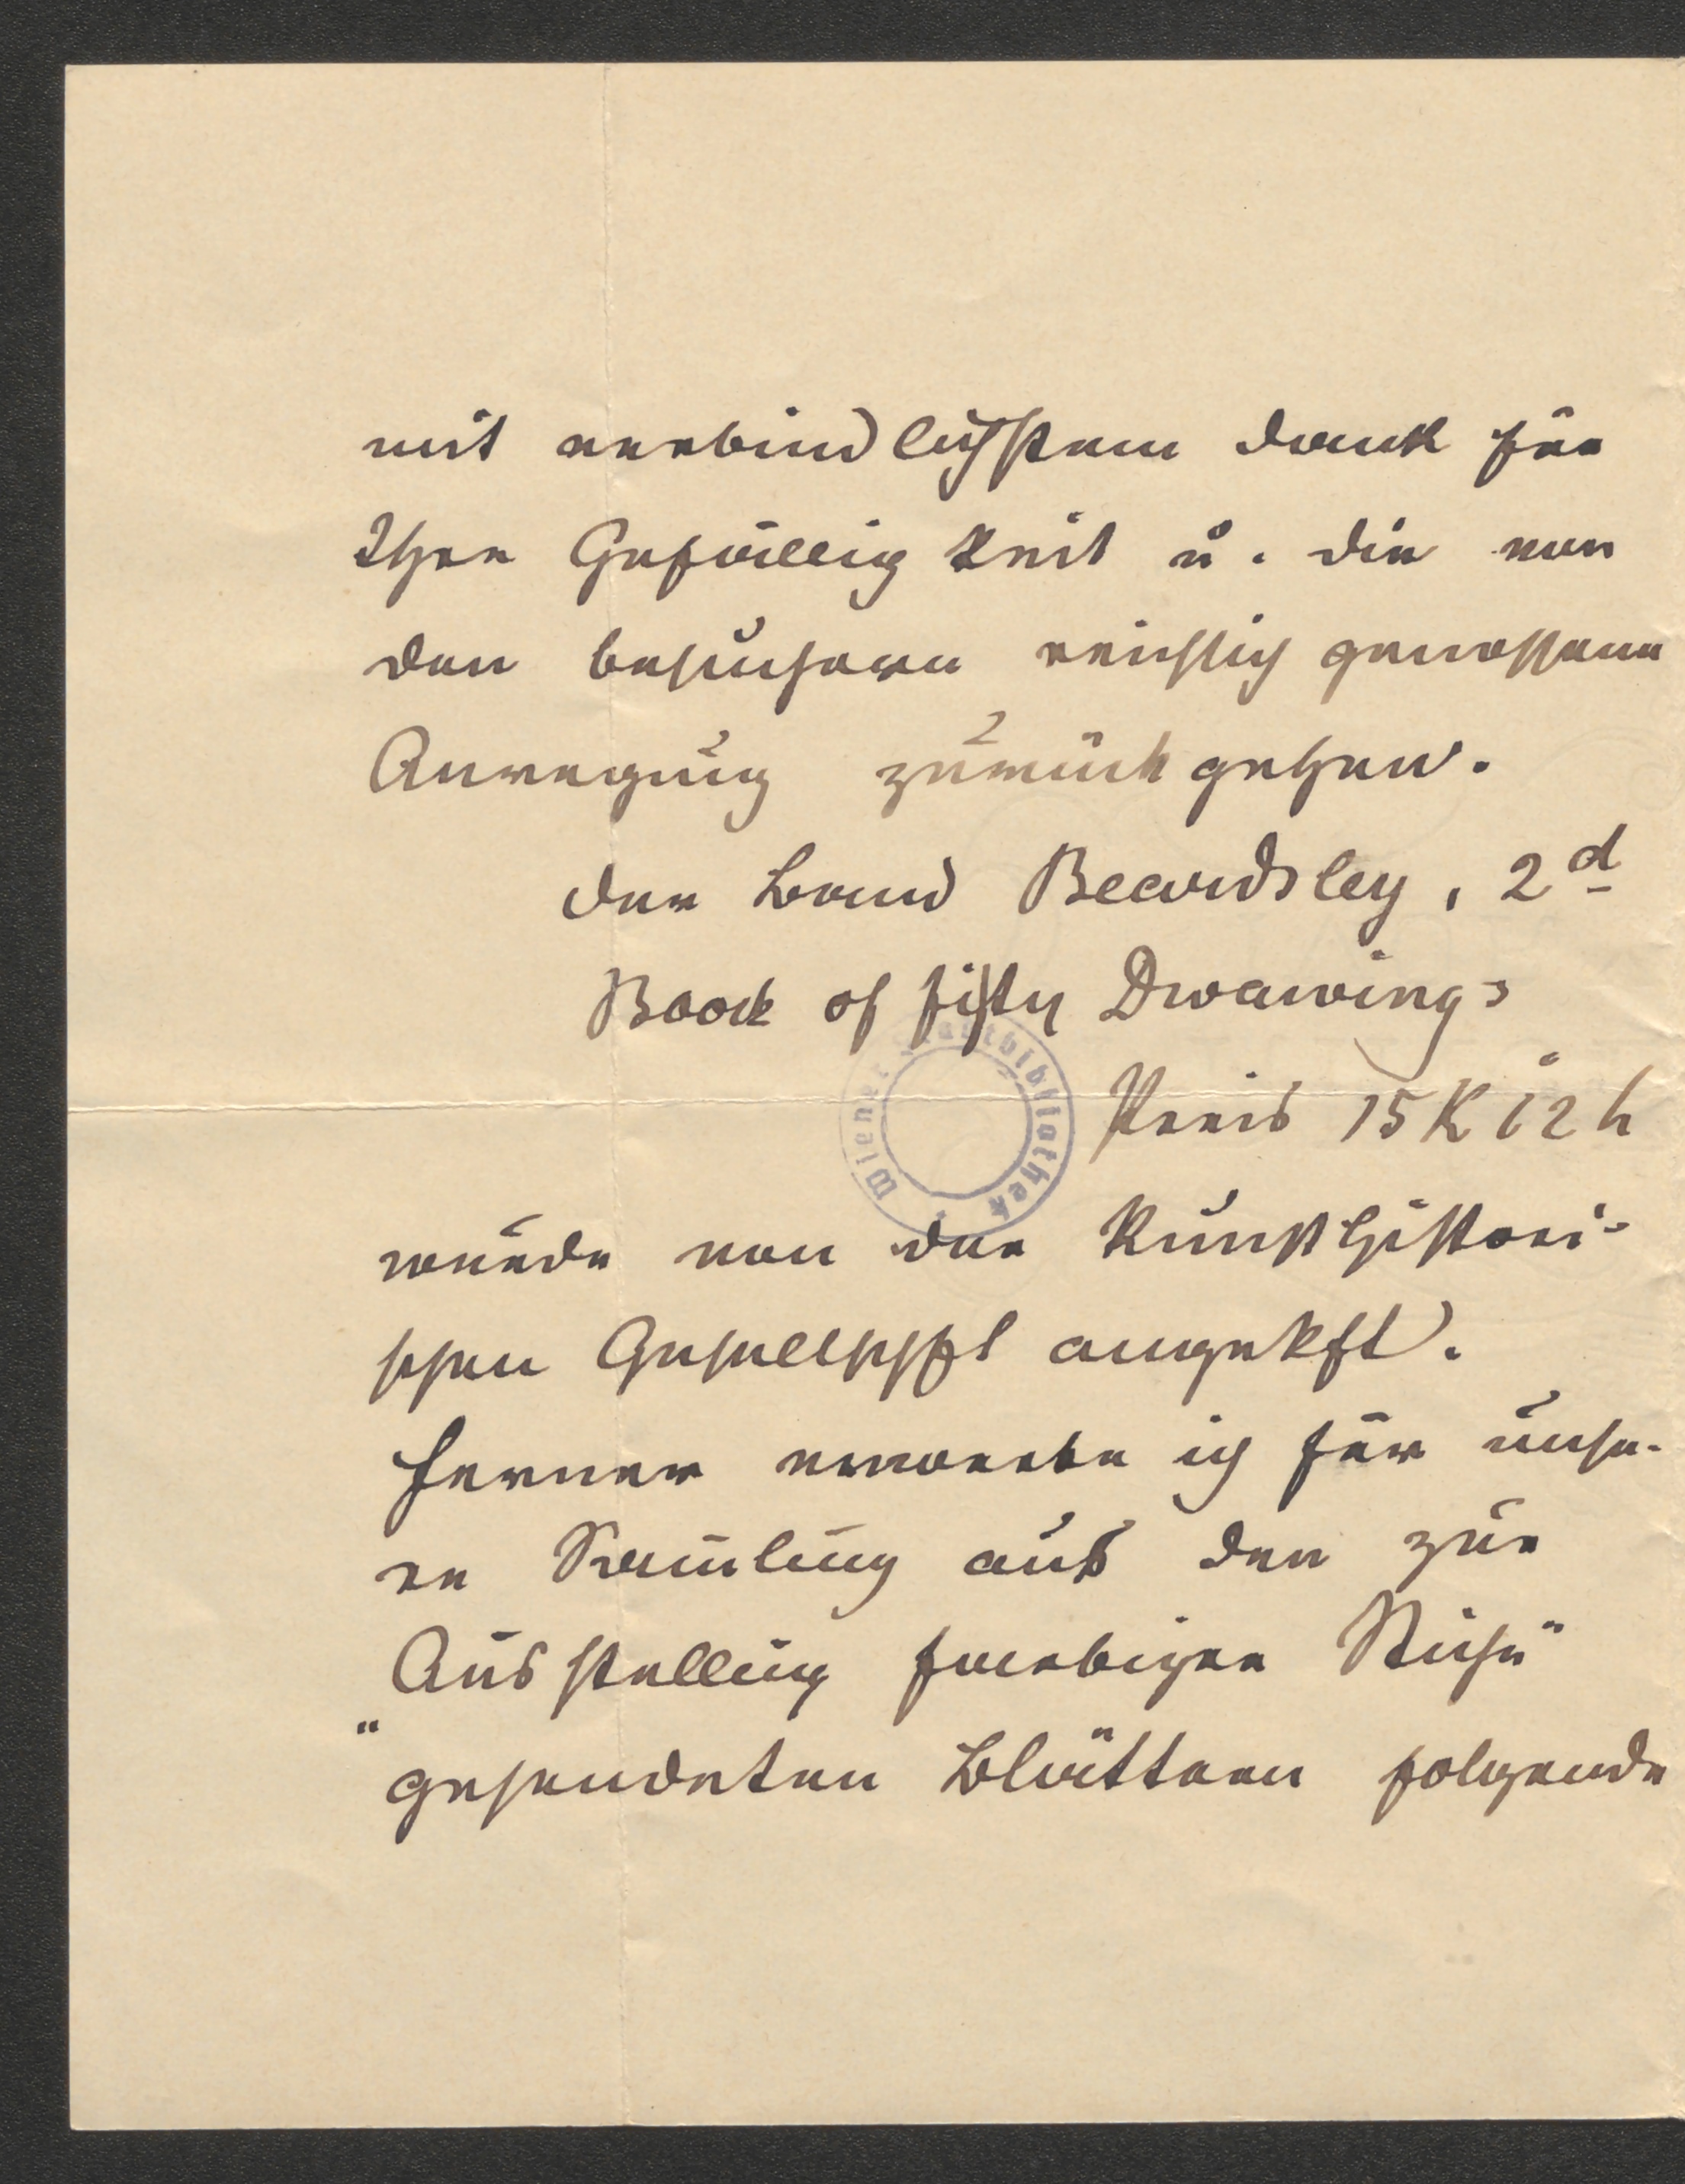 mit verbindlichstem Dank für
Ihre Gefälligkeit u. die von
den Besuchern reichlich genossene
Anregung zurückgehen.
Der Band Beardsley, 2d
Book of fifty Drawings
Preis 15 K 12 h
wurde von der Kunsthistori-
schen Gesellschft angekft.
Ferner erwerbe ich für unse-
re Samlung aus den zur
Ausstellung farbiger Stiche"
"gesendeten Blättern folgende
Wiener Stadtbibliothek